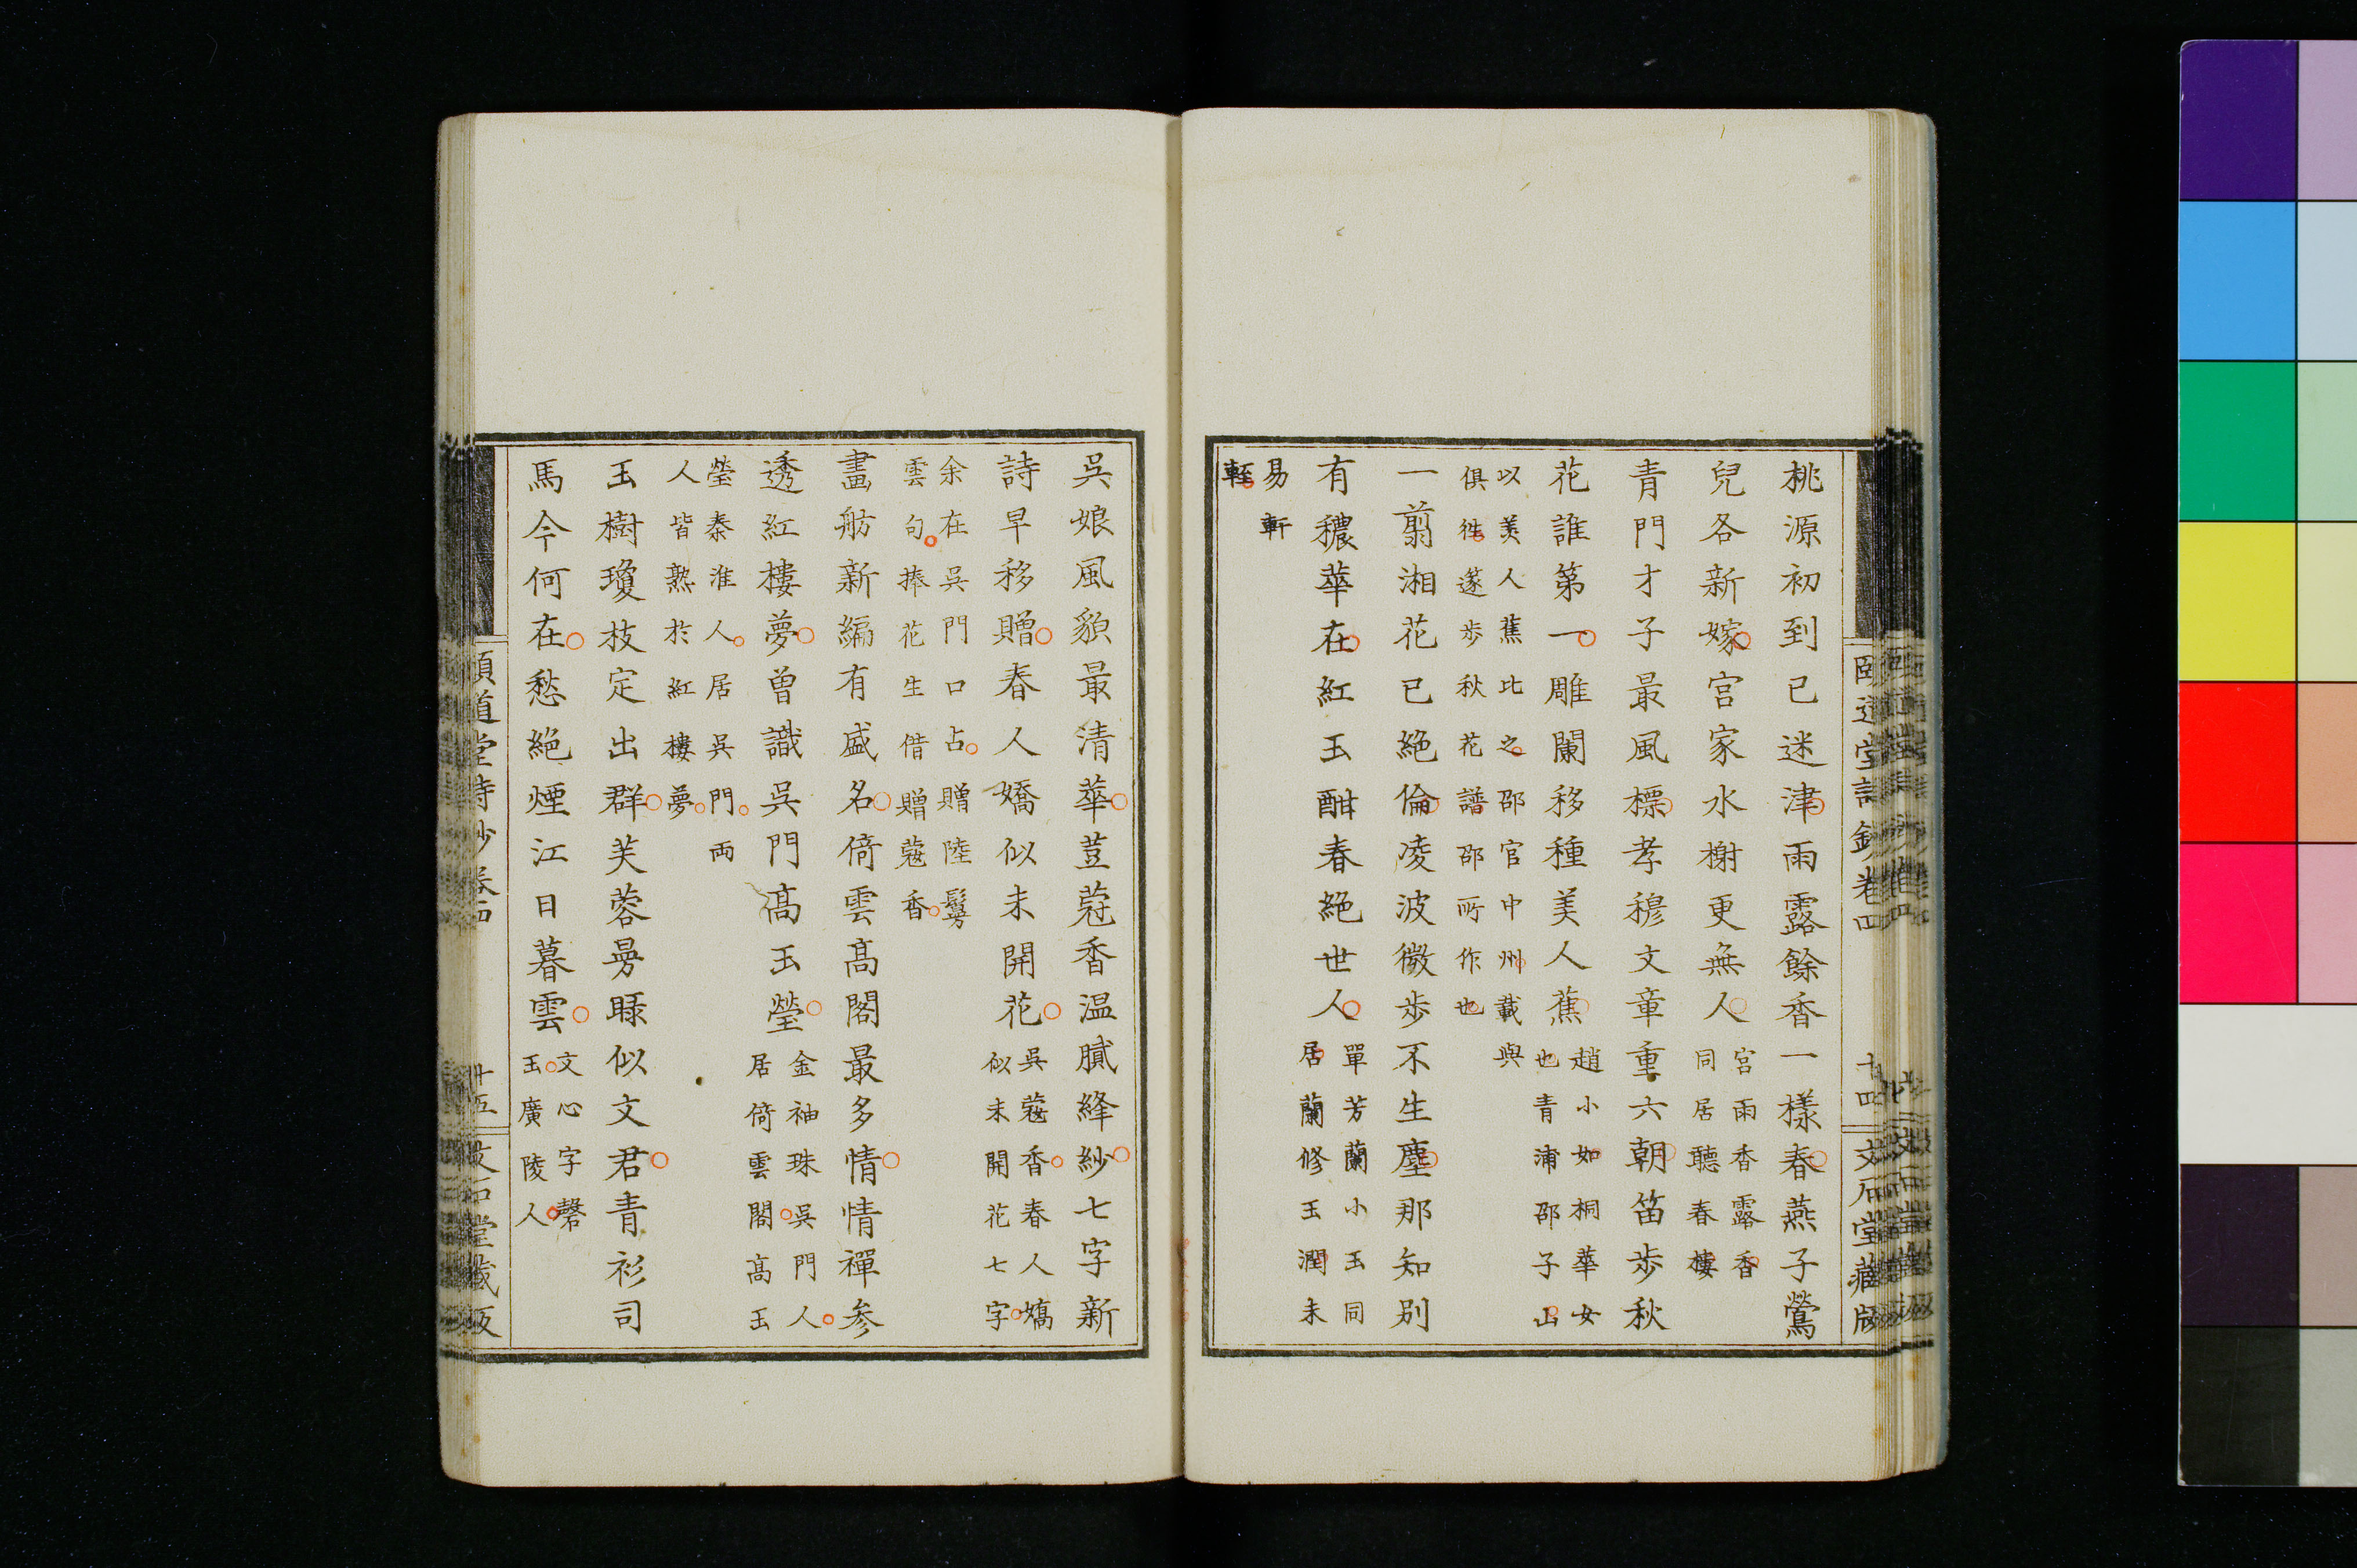 桃源初到已迷津雨露餘香一樣春燕子鶯
兒各新嫁宮家水榭更無人宮雨香露香
同居聽春樓
青門才子最風標孝穆文章重六朝笛步秋
花誰第一雕闌移種美人蕉趙小如桐華女
也青浦邵子山
以美人蕉比之邵官中州載與
俱徃遂步秋花譜邵所作也
一翦湘花已絕倫凌波微步不生塵那知別
有穠華在紅玉酣春絕世人單芳蘭小玉同
居蘭修玉潤未
易軒
輊
頤道堂詩鈔卷四
十四
文石堂藏版
吳娘風貌最清華荳蔻香温膩絳紗七字新
詩早移贈春人嬌似未開花吳蔻香春人嬌
似未開花七字
余在吳門口占贈陸鬘
雲句捧花生借贈蔻香
畫舫新編有盛名倚雲高閣最多情情禪參
透紅樓夢曾識吳門高玉瑩金袖珠吳門人
居倚雲閣高玉
瑩秦淮人居吳門両
人皆熟於紅樓夢
玉樹瓊枝定出群芙蓉㬅睩似文君青衫司
馬今何在愁絕煙江日暮雲文心字磬
玉廣陵人
頤道堂詩鈔卷四
十五
文石堂藏版